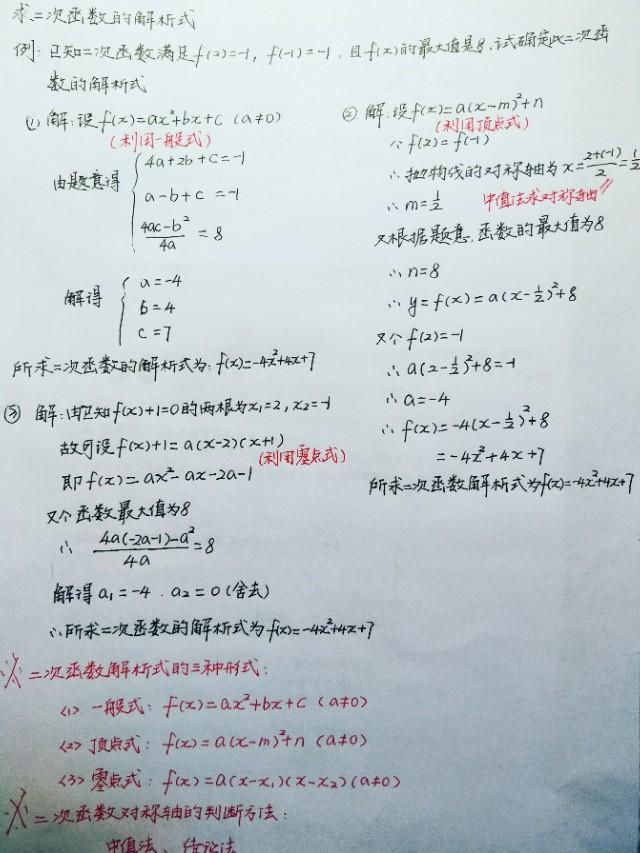 求二次函数的解析式
例：已知二次函数满足f(2)=-1，f(-1)=-1，且f(x)的最大值是8，试确定此二次函
数的解析式
① 解：设f(x)=ax²+bx+c (a≠0)
(利用一般式)
由题意得 { 4a+2b+c=-1
a-b+c=-1
(4ac-b²)/4a = 8
解得 { a=-4
b=4
c=7
所求二次函数的解析式为：f(x)=-4x²+4x+7
② 解：设f(x)=a(x-m)²+n
(利用顶点式)
∵f(2)=f(-1)
∴抛物线的对称轴为x=(2+(-1))/2=1/2
∴m=1/2 中值法求对称轴
又根据题意，函数的最大值为8
∴n=8
∴y=f(x)=a(x-1/2)²+8
又∵f(2)=-1
∴a(2-1/2)²+8=-1
∴a=-4
∴f(x)=-4(x-1/2)²+8
=-4x²+4x+7
所求二次函数解析式为f(x)=-4x²+4x+7
③ 解：由已知f(x)+1=0的两根为x₁=2，x₂=-1
故可设f(x)+1=a(x-2)(x+1)
(利用零点式)
即f(x)=ax²-ax-2a-1
又∵函数最大值为8
∴ (4a(-2a-1)-a²)/4a=8
解得a₁=-4．a₂=0(舍去)
∴所求二次函数的解析式为f(x)=-4x²+4x+7
※二次函数解析式的三种形式：
<1> 一般式：f(x)=ax²+bx+c (a≠0)
<2> 顶点式：f(x)=a(x-m)²+n (a≠0)
<3> 零点式：f(x)=a(x-x₁)(x-x₂)(a≠0)
※二次函数对称轴的判断方法：
中值法、结论法